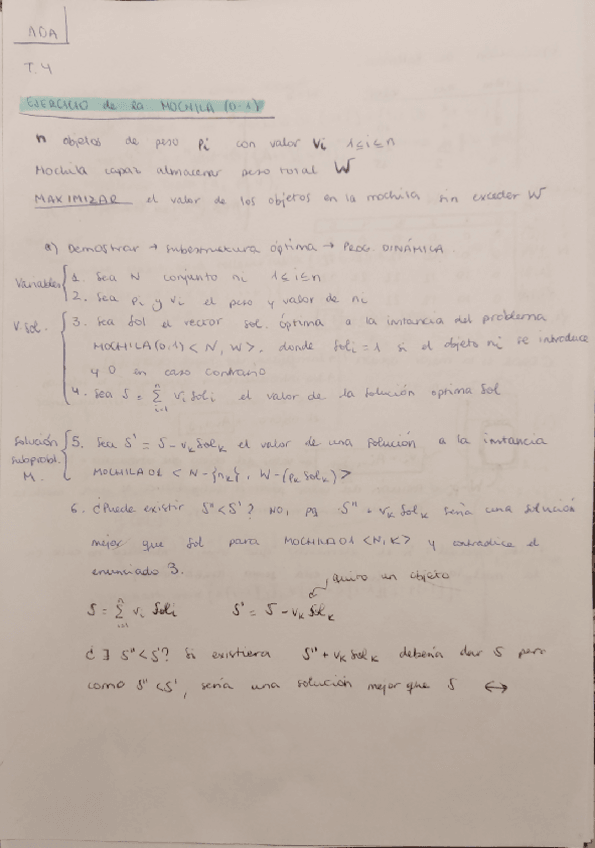 ADA
T.4
EJERCICIO de la MOCHILA (0-1)
n objetos de peso pi con valor vi 1≤i≤n
Mochila capaz almacenar peso total W
MAXIMIZAR el valor de los objetos en la mochila sin exceder W
a) Demostrar → Subestructura óptima → PROG. DINÁMICA.
Variables { 1. Sea N conjunto ni 1≤i≤n
2. Sea pi y vi el peso y valor de ni
V. Sol. { 3. Sea Sol el vector sol. óptima a la instancia del problema
MOCHILA(0,1) < N, W>. donde Soli = 1 si el objeto ni se introduce
y 0 en caso contrario
4. Sea S = Σ(i=1..n) vi Soli el valor de la solución optima Sol
Solución Subprobl. M. { 5. Sea S' = S - vK SolK el valor de una solución a la instancia
MOCHILA01 < N-{nK}, W-(pK SolK)>
6. ¿Puede existir S''<S'? NO, pq S'' + vK SolK sería una solución
mejor que Sol para MOCHILA01 <N,K> y contradice el
enunciado 3.
quito un objeto
S = Σ(i=1..n) vi Soli S' = S - vK SolK
¿∃ S''<S'? Si existiera S'' + vK SolK debería dar S pero
como S''<S', sería una solución mejor que S ↔